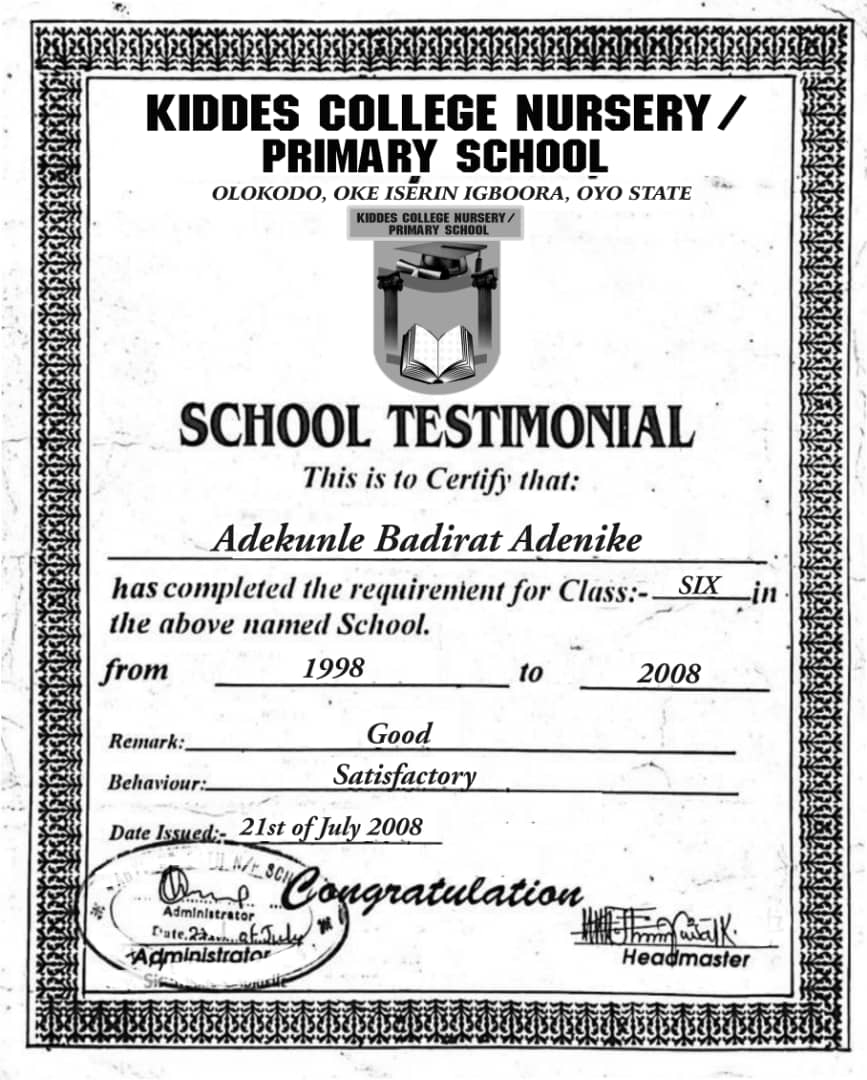 KIDDES COLLEGE NURSERY/
PRIMARY SCHOOL
OLOKODO, OKE ISERIN IGBOORA, OYO STATE
KIDDES COLLEGE NURSERY/
PRIMARY SCHOOL
SCHOOL TESTIMONIAL
This is to Certify that:
Adekunle Badirat Adenike
has completed the requirement for Class:- SIX in
the above named School.
from 1998 to 2008
Remark: Good
Behaviour: Satisfactory
Date Issued:- 21st of July 2008
Congratulation
Administrator
Date, of July
Administrator
Headmaster